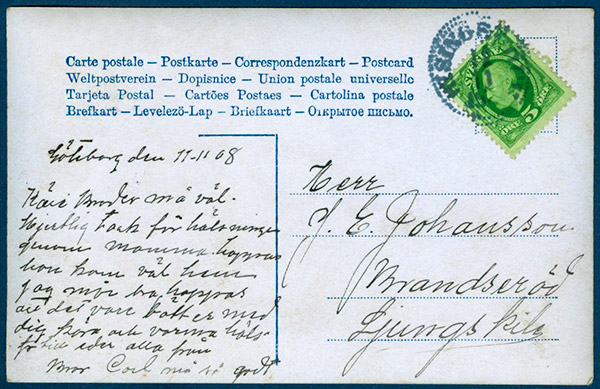 Carte postale – Postkarte – Correspondenzkart – Postcard
Weltpostverein – Dopisnice – Union postale universelle
Tarjeta Postal – Cartões Postaes – Cartolina postale
Brefkart – Levelező-Lap – Briefkaart – Открытое письмо.
SVERIGE
5 ÖRE
Göteborg den 11-11 08
Käre Broder må väl.
Hjertlig tack för hälsningen
genom mamma hoppas
hon kom väl hem
jag mår bra hoppas
att det är bättre med
dig kära och varma häls-
till eder alla från
Bror Carl må så godt
Herr
J. E. Johansson.
Brandseröd
Ljungskile